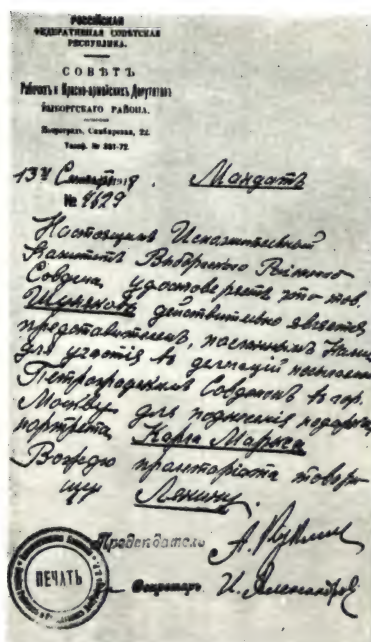 РОССІЙСКАЯ
ФЕДЕРАТИВНАЯ СОВѢТСКАЯ
РЕСПУБЛИКА.
СОВѢТЪ
Рабочихъ и Красно-армейскихъ Депутатовъ
ВЫБОРГСКАГО РАЙОНА.
Петроградъ, Самбурская, 22.
Телеф. № 331-72.
13го Сентября 1918.
Мандатъ
№ 4629
Настоящимъ Исполнительный
Комитетъ Выборгскаго Районнаго
Совдепа удостоверяетъ что тов.
Шуняковъ действительно является
представителемъ, посланнымъ Нами
для участія въ делегаціи посылаемой
Петроградскимъ Совдепомъ въ гор.
Москву для поднесенія подарка,
портрета Карла Маркса
Вождю пролетаріата товари-
щу Ленину.
Председатель А. Куклин
ПЕЧАТЬ
Секретарь И. Александров